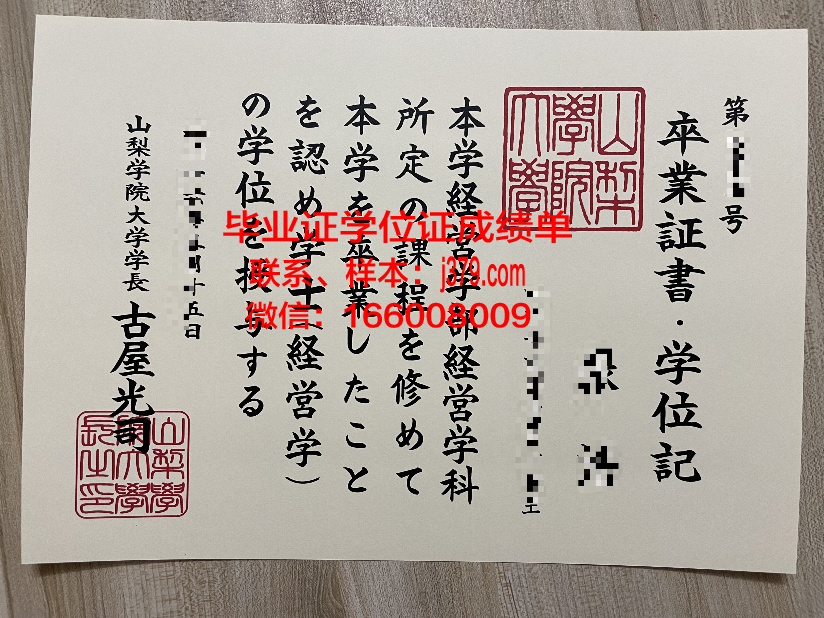 第
号
卒業証書・学位記
山梨
學院
大學
本学経営学部経営学科
所定の課程を修めて
本学を卒業したこと
を認め学士(経営学)
の学位を授与する
十五日
山梨学院大学学長 古屋光司
山梨學
院大學
長之印
毕业证学位证成绩单
联系、样本：j379.com
微信：166008009